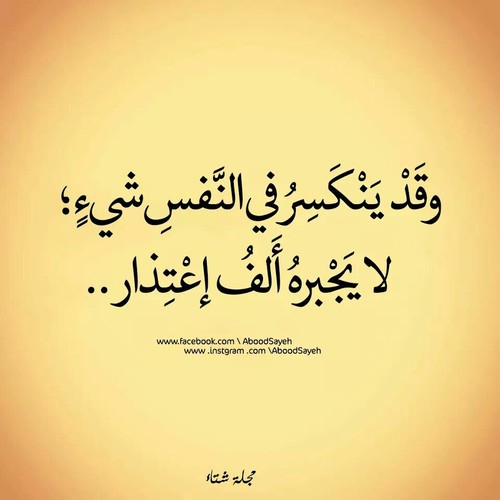 وقَدْ يَنْكَسِرُ في النَّفسِ شيءٍ؛
لا يَجْبرهُ أَلفُ إعْتِذار ..
www.facebook.com \ AboodSayeh
www .instgram .com \AboodSayeh
مجلة شتاء